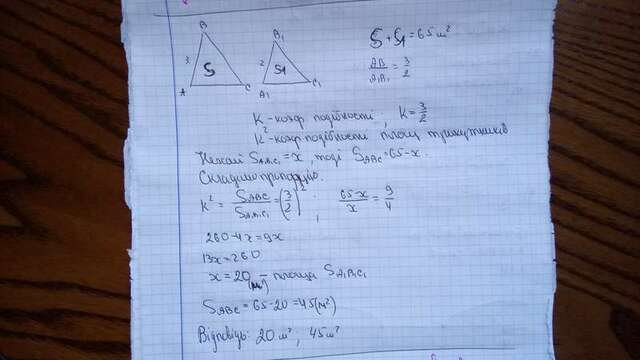 B
3
S
A
C
B₁
2
S₁
A₁
C₁
S + S₁ = 65 м²
AB/A₁B₁ = 3/2
K - коеф подібності, K = 3/2
K² - коеф подібності площ трикутників
Нехай S A₁B₁C₁ = x, тоді S ABC = 65 - x.
Складемо пропорцію.
K² = S ABC / S A₁B₁C₁ = (3/2)²; (65-x)/x = 9/4
260-4x=9x
13x=260
x = 20 (м²) - площа S A₁B₁C₁
S ABC = 65-20=45(м²)
Відповідь: 20 м², 45 м²